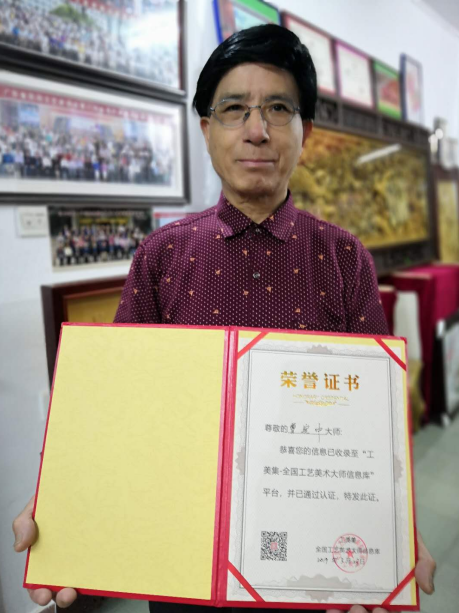 荣誉证书
尊敬的 大师:
恭喜您的信息已收录至“工
美集-全国工艺美术大师信息库”
平台，并已通过认证，特发此证。
全国工艺美术大师信息库